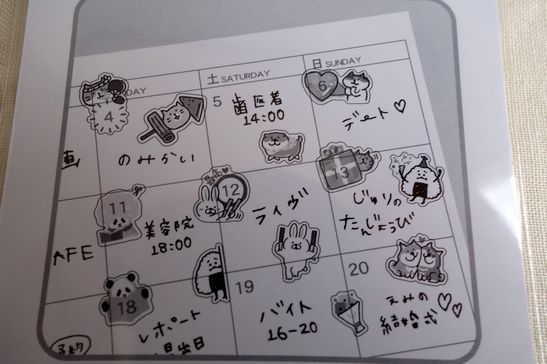 DAY
土 SATURDAY
日 SUNDAY
4
のみかい
5
歯医者
14:00
6
デート♡
画
11
美容院
18:00
12
ライヴ
13
じゅりの
たんじょうび
AFE
18
レポート
提出日
19
バイト
16-20
20
えみの
結婚式